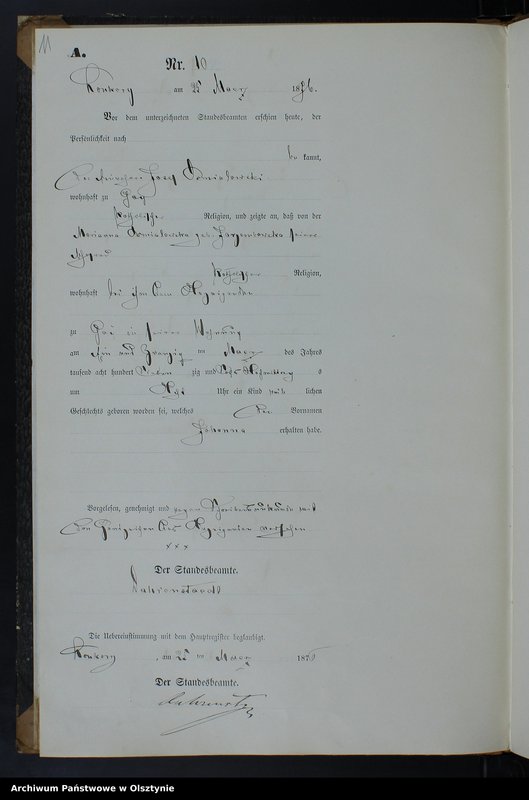 11
A.
Nr. 10
am 25 Maerz 1876.
Vor dem unterzeichneten Standesbeamten erschien heute, der
Persönlichkeit nach
be kannt,
der Josef
wohnhaft zu Gay
Katholischer Religion, und zeigte an, daß von der
Marianna geb. seiner
Ehefrau
Katholischer Religion,
wohnhaft bei ihm dem Anzeigenden
zu Gay in seiner Wohnung
am ein und Zwanzig ten Maerz des Jahres
tausend acht hundert Sieben zig und Sechs Nachmittag s
um Acht Uhr ein Kind weib lichen
Geschlechts geboren worden sei, welches den Vornamen
Johanna erhalten habe.
Vorgelesen, genehmigt und wegen
den Handzeichen des Anzeigenden versehen
x x x
Der Standesbeamte.
Die Uebereinstimmung mit dem Hauptregister beglaubigt.
, am 25 ten Maerz 1876
Der Standesbeamte.
Archiwum Państwowe w Olsztynie